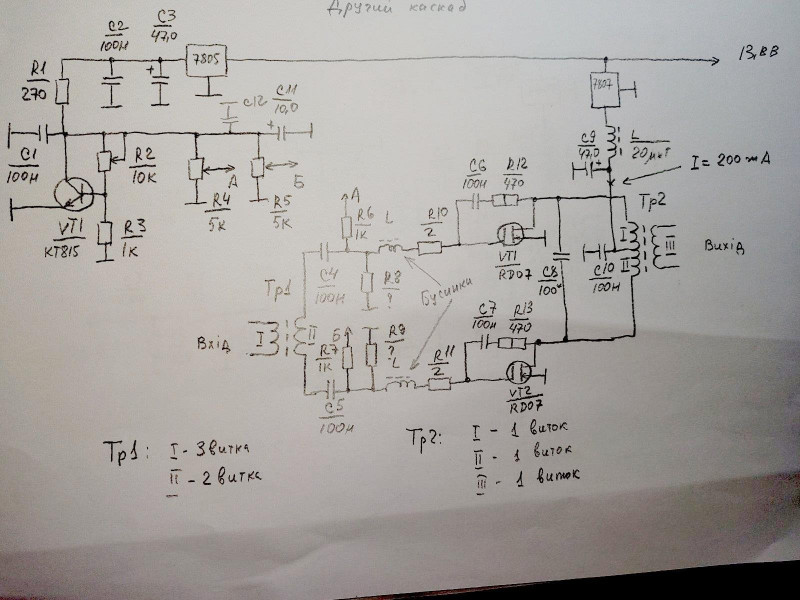 Другий каскад
C2
100н
C3
47,0
7805
13,8В
R1
270
C12
C11
10,0
7807
C9
47,0
L
20мкГ
I = 200 mA
C1
100н
R2
10к
А
R4
5к
Б
R5
5к
VT1
КТ815
R3
1к
А
R6
1к
L
R10
2
C6
100н
R12
470
VT1
RD07
C8
C10
100н
Тр2
I
II
III
Вихід
C4
100н
R8
?
Бусинки
Тр1
Вхід
I
II
Б
R7
1к
R9
?
L
R11
2
C7
100н
R13
470
VT2
RD07
C5
100н
Тр1: I - 3 витка
II - 2 витка
Тр2: I - 1 виток
II - 1 виток
III - 1 виток